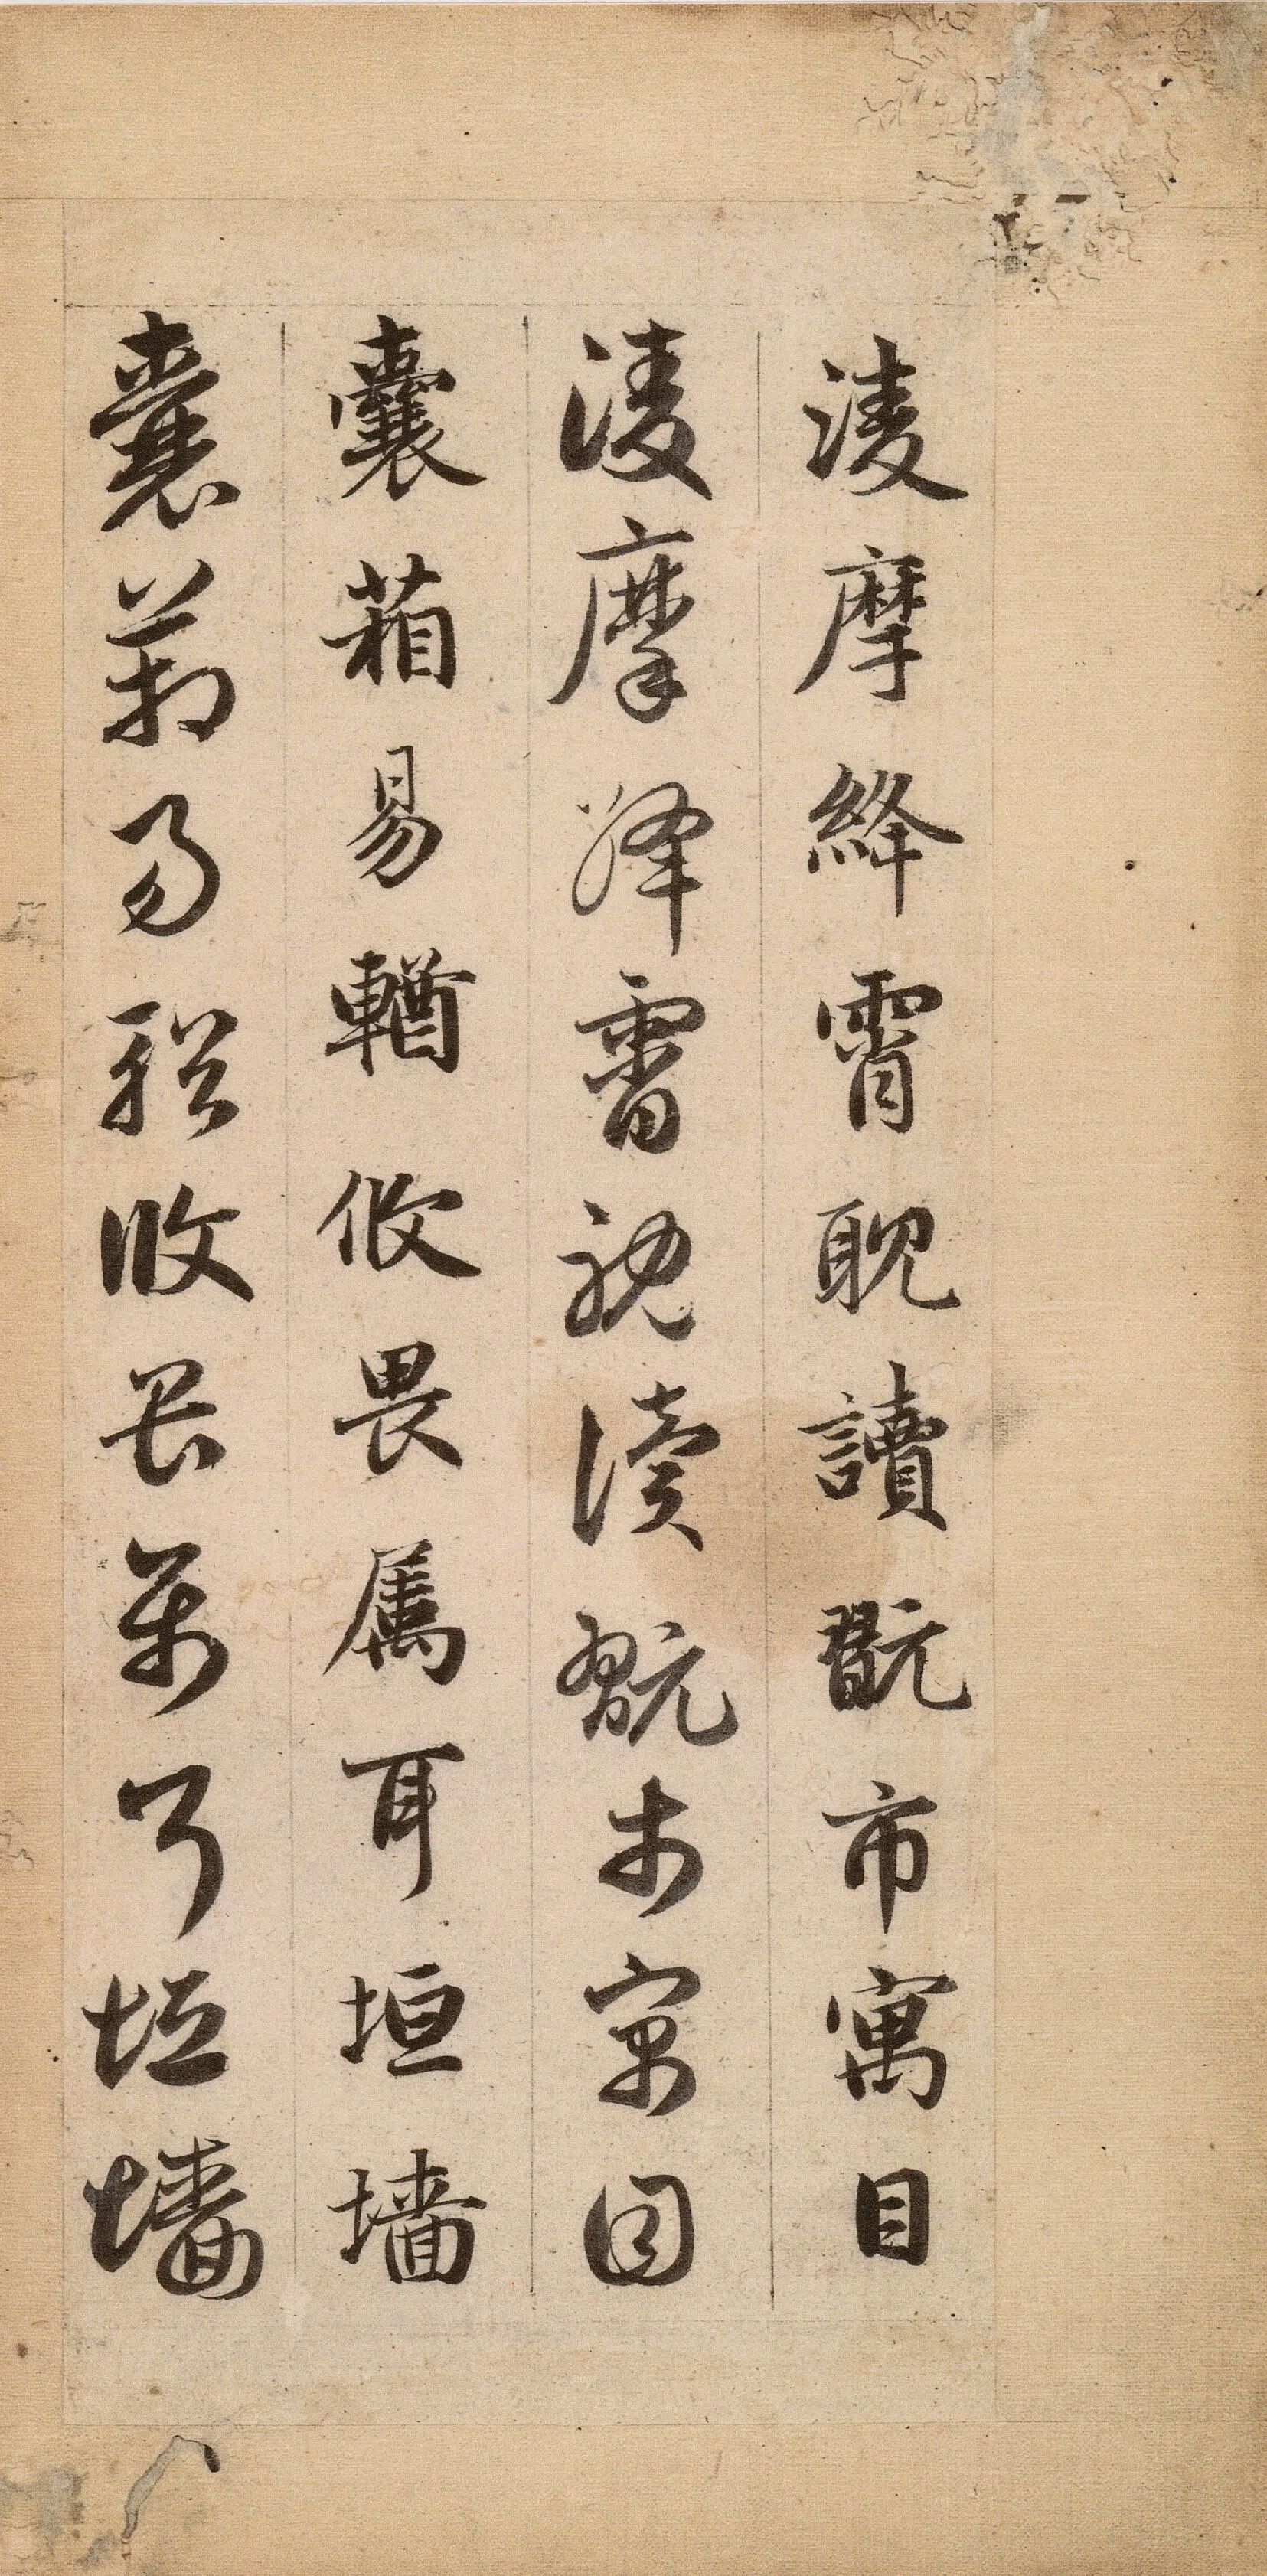 淩摩絳霄耽讀翫市寓目
淩摩絳霄耽讀翫市寓目
囊葙易輶攸畏属耳垣墙
囊葙易輶攸畏属耳垣墙